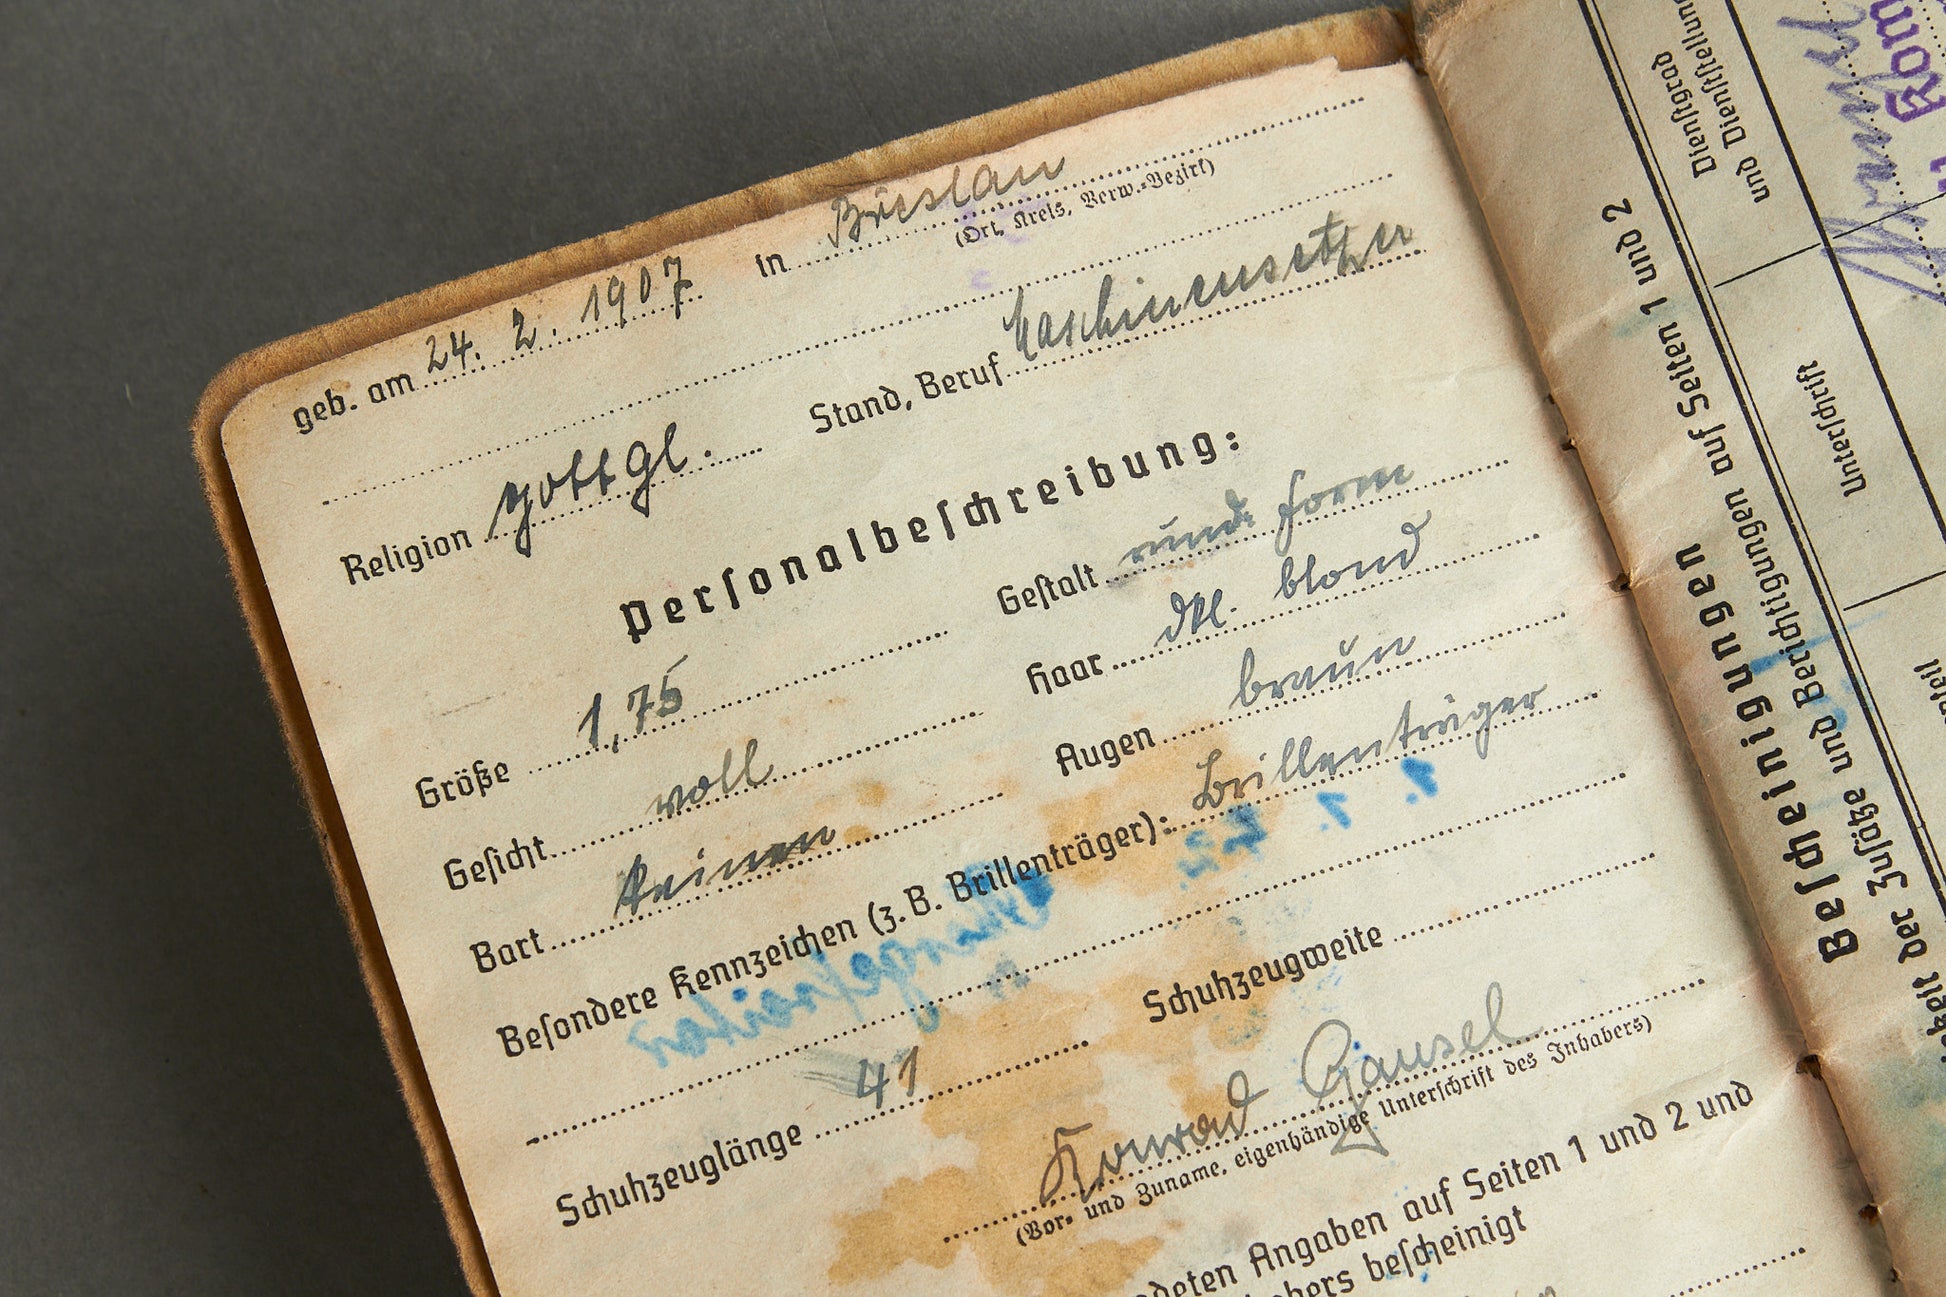 geb. am 24. 2. 1907 in Breslau
(Ort, Kreis, Verw.-Bezirk)
Religion gottgl. Stand, Beruf Maschinensetzer
Personalbeschreibung:
Größe 1,75 Gestalt rund. Form
Gesicht voll Haar dkl. blond
Bart keinen Augen braun
Besondere Kennzeichen (z.B. Brillenträger): Brillenträger
Schuhzeuglänge 41 Schuhzeugweite
Konrad Gansel
(Vor- und Zuname, eigenhändige Unterschrift des Inhabers)
Angaben auf Seiten 1 und 2 und
bescheinigt
Bescheinigungen
der Zusätze und Berichtigungen auf Seiten 1 und 2
Dienstgrad
und Dienststellung
Unterschrift